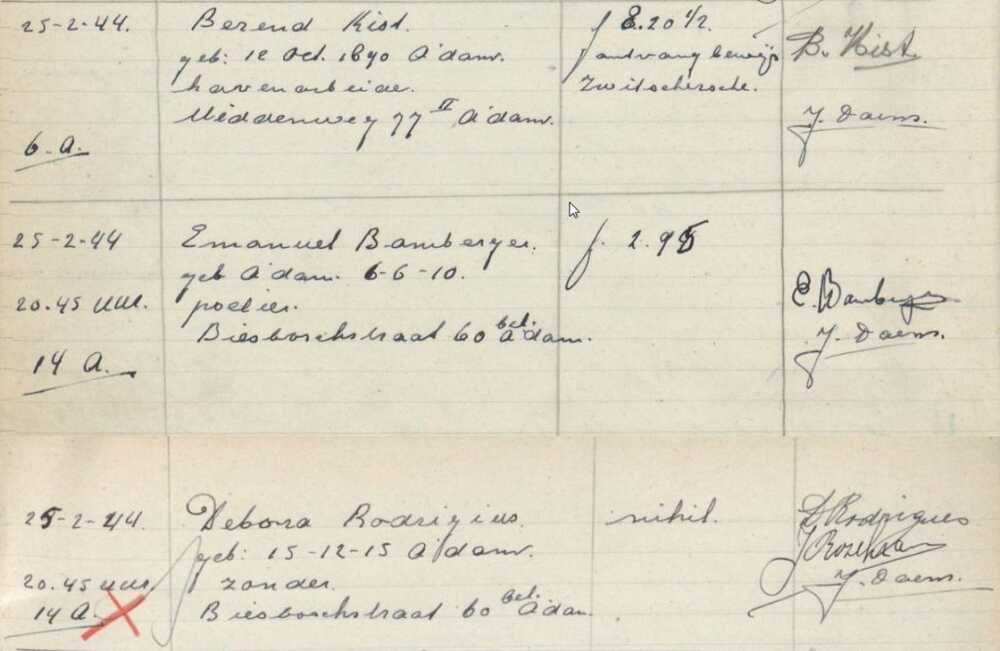 25-2-44. Berend Kist. f 8.20 1/2.
geb: 12 Oct. 1890 A'dam. ontvangbewijs B. Kist.
havenarbeider. Zwitschersche.
Middenweg 77 II A'dam. J. Daems.
6. A.
25-2-44 Emanuel Bamberger. f. 2.95
geb A'dam. 6-6-10.
20.45 uur. poelier. E. Bamberger
Biesboschstraat 60 bel. A'dam. J. Daems.
14 A.
25-2-44. Debora Rodrigius. nihil. D Rodrigues
geb: 15-12-15 A'dam.
20.45 uur zonder. J. Daems.
14 A. Biesboschstraat 60 bel. A'dam